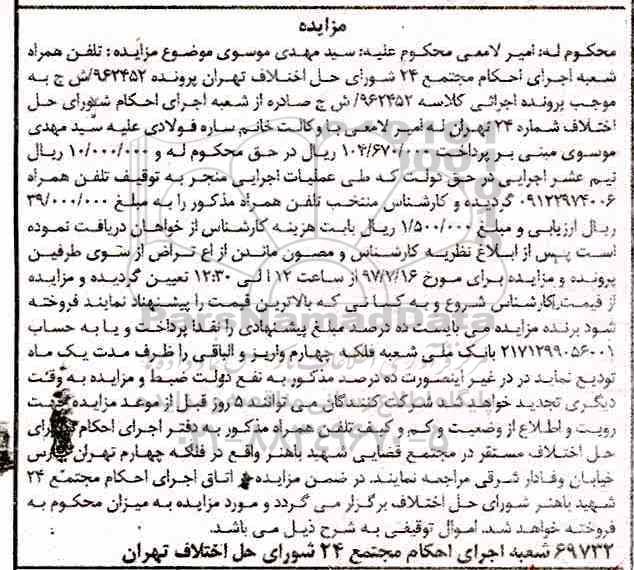 مزایده
محکوم له: امیر لامعی محکوم علیه: سید مهدی موسوی موضوع مزایده: تلفن همراه
شعبه اجرای احکام مجتمع ۲۴ شورای حل اختلاف تهران پرونده ۹۶۲۴۵۲/ش ج به
موجب پرونده اجرائی کلاسه ۹۶۲۴۵۲/ ش ج صادره از شعبه اجرای احکام شورای حل
اختلاف شماره ۲۴ تهران له امیر لامعی با وکالت خانم ساره فولادی علیه سید مهدی
موسوی مبنی بر پرداخت ۱۰۴/۶۷۰/۰۰۰ ریال در حق محکوم له و ۱۰/۰۰۰/۰۰۰ ریال
نیم عشر اجرایی در حق دولت که طی عملیات اجرایی منجر به توقیف تلفن همراه
۰۹۱۲۲۹۷۴۰۰۶ گردیده و کارشناس منتخب تلفن همراه مذکور را به مبلغ ۳۹/۰۰۰/۰۰۰
ریال ارزیابی و مبلغ ۱/۵۰۰/۰۰۰ ریال بابت هزینه کارشناس از خواهان دریافت نموده
است پس از ابلاغ نظریه کارشناس و مصون ماندن از اع تراض از سوی طرفین
پرونده و مزایده برای مورخ ۹۷/۷/۱۶ از ساعت ۱۲ الی ۱۲:۳۰ تعیین گردیده و مزایده
از قیمت کارشناس شروع و به کسانی که بالاترین قیمت را پیشنهاد نمایند فروخته
شود برنده مزایده می بایست ده درصد مبلغ پیشنهادی را نقدا پرداخت و یا به حساب
۲۱۷۱۲۹۹۰۵۶۰۰۱ بانک ملی شعبه فلکه چهارم واریز و الباقی را ظرف مدت یک ماه
تودیع نماید در غیر اینصورت ده درصد مذکور به نفع دولت ضبط و مزایده به وقت
دیگری تجدید خواهد شد شرکت کنندگان می توانند ۵ روز قبل از موعد مزایده جهت
رویت و اطلاع از وضعیت و کم و کیف تلفن همراه مذکور به دفتر اجرای احکام شورای
حل اختلاف مستقر در مجتمع قضایی شهید باهنر واقع در فلکه چهارم تهران پارس
خیابان وفادار شرقی مراجعه نمایند. در ضمن مزایده در اتاق اجرای احکام مجتمع ۲۴
شهید باهنر شورای حل اختلاف برگزار می گردد و مورد مزایده به میزان محکوم به
فروخته خواهد شد. اموال توقیفی به شرح ذیل می باشد.
۶۹۷۳۲ شعبه اجرای احکام مجتمع ۲۴ شورای حل اختلاف تهران
ParsNamadData
۰۲۱-۸۸۳۴۹۶۷۰-۵